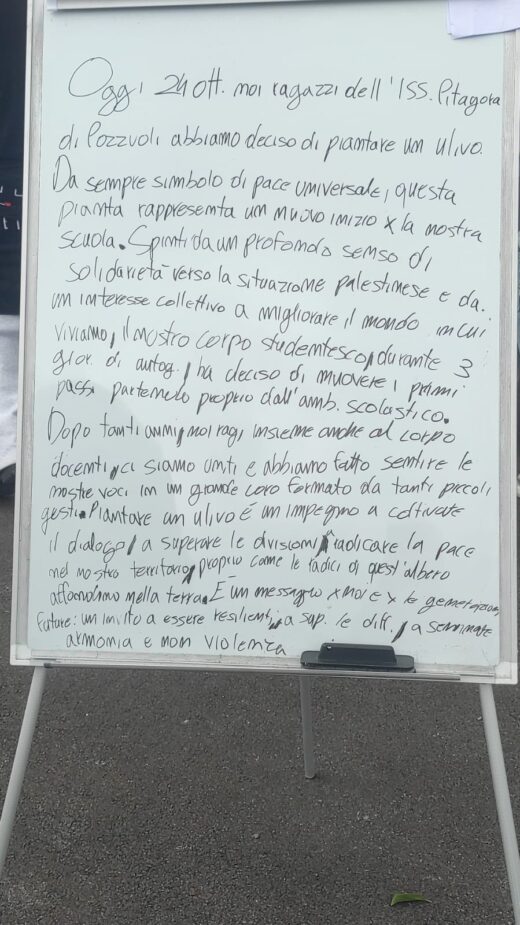 Oggi 24 ott. noi ragazzi dell'ISS. Pitagora
di Pozzuoli abbiamo deciso di piantare un ulivo.
Da sempre simbolo di pace universale, questa
pianta rappresenta un nuovo inizio x la nostra
scuola. Spinti da un profondo senso di
solidarietà verso la situazione palestinese e da
un interesse collettivo a migliorare il mondo in cui
viviamo, il nostro corpo studentesco, durante 3
gior. di autog., ha deciso di muovere i primi
passi partendo proprio dall'amb. scolastico.
Dopo tanti anni, noi rag, insieme anche al corpo
docenti, ci siamo uniti e abbiamo fatto sentire le
nostre voci in un grande coro formato da tanti piccoli
gesti. Piantare un ulivo é un impegno a coltivare
il dialogo, a superare le divisioni, radicare la pace
nel nostro territorio, proprio come le radici di quest'albero
affondano nella terra. È un messaggio x noi e x le generazioni
future: un invito a essere resilienti, a sup. le diff., a seminare
armonia e non violenza